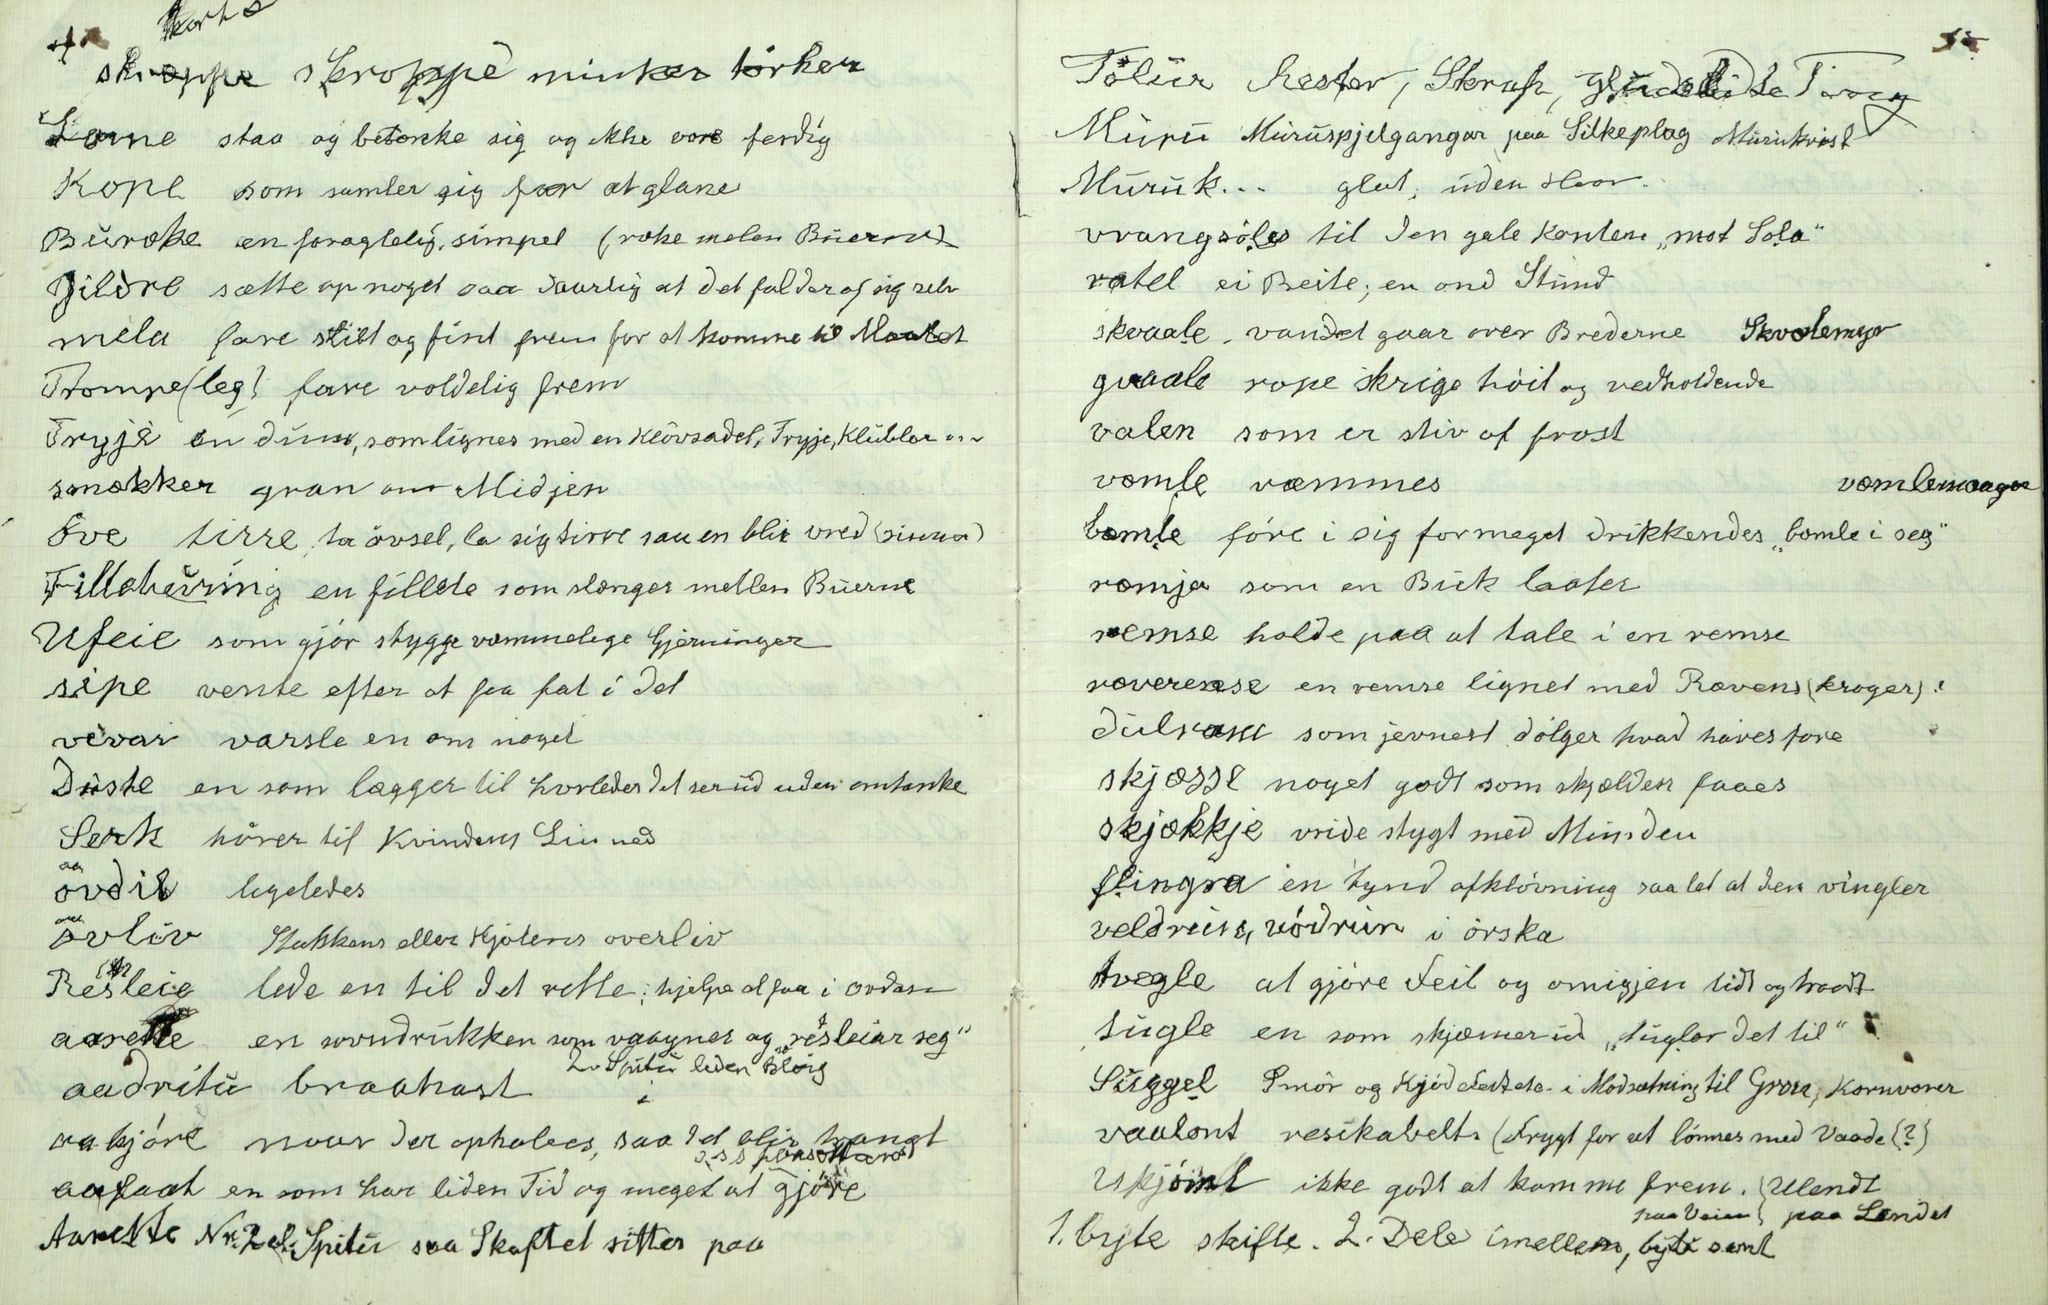 skroppe skroppe minker törker
staa og betenke sig og ikke vere ferdig
Kope som samler sig for at glane
Buræke en foragtelig, simpel (ræke melen Buerne)
Gildre sætte op noget saa daarlig at det falder af sig selv
mela fare stilt og fint frem for at komme til Maalet
Trompe(leg) fare voldelig frem
Tryje en dum, som lignes med en Klövsadel, Tryje, Klubbor
smækker gran om Midjen
Öve tirre, ta övsel, la sig tirre saa en blir vred (sinna)
Fillehæring en fillete som slænges mellem Buerne
Ufeie som gjör stygge vemmelege Gjerninger
sipe vente efter at faa fat i det
vevar varsle en om noget
Duste en som lægger til hvorledes det ser ud uden omtanke
Serk hörer til Kvindens Linned
ovdil ligeledes
ovliv Stakkens eller Kjolens overliv
Resleie lede en til det rette; hjelpe at faa i ordan
aarette en sovndrukken som vaagner og "resleiar seg"
aadritu braahast
aakjöre naar der opholdes, saa det blir trangt
aafaat en som har liden Tid og meget at gjöre
Aarette No. 2 Spitu saa Skaftet sitter paa
Tölur Rester, Skrap, Ting
Muru Muruspjelgangar paa Silkeplag Murukvist
Muruk... glat, uden Haar.
vrangsöles til den gale Kanten "mot Sola"
ratel ei Beite; en ond Stund
skvaale vandet gaar over Brederne
gvaale rope skrige höit og vedholdende
valen som er stiv af frost
vemle væmmes vemlemaage
bemle före i sig formeget drikkendes, "bemle i seg"
remja som en Buk laater
remse holde paa at tale i en remse
reveremse en remse lignet med Rævens (kroger)
dulram som jevnest dölger hvad haves fore
skjæsse noget godt som skjælden faaes
skjækkje vride stygt med Munden
flingra en tynd afklövning saa let at den vingler
veldrius, vödriur i örska
tvegle at gjöre Feil og omigjen lidt og traadt
tugle en som skjæmer ud, "tuglar det til"
Suggel Smör og Kjöd i Modsætning til Grou, Kornvarer
vaalont resikabelt. (Frygt for at lönnes med Vaade (?)
Uskjömt ikke godt at komme frem. (Ulendt
paa Veien) paa Landet
1. byte skifte. 2. Dele imellem, byte samt